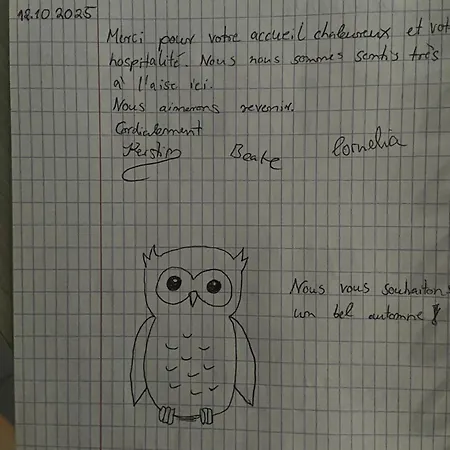 12.10.2025
Merci pour votre accueil chaleureux et vot
hospitalité. Nous nous sommes sentis très
à l'aise ici.
Nous aimerons revenir.
Cordialement
Kerstin Beate Cornelia
Nous vous souhaitons
un bel automne !